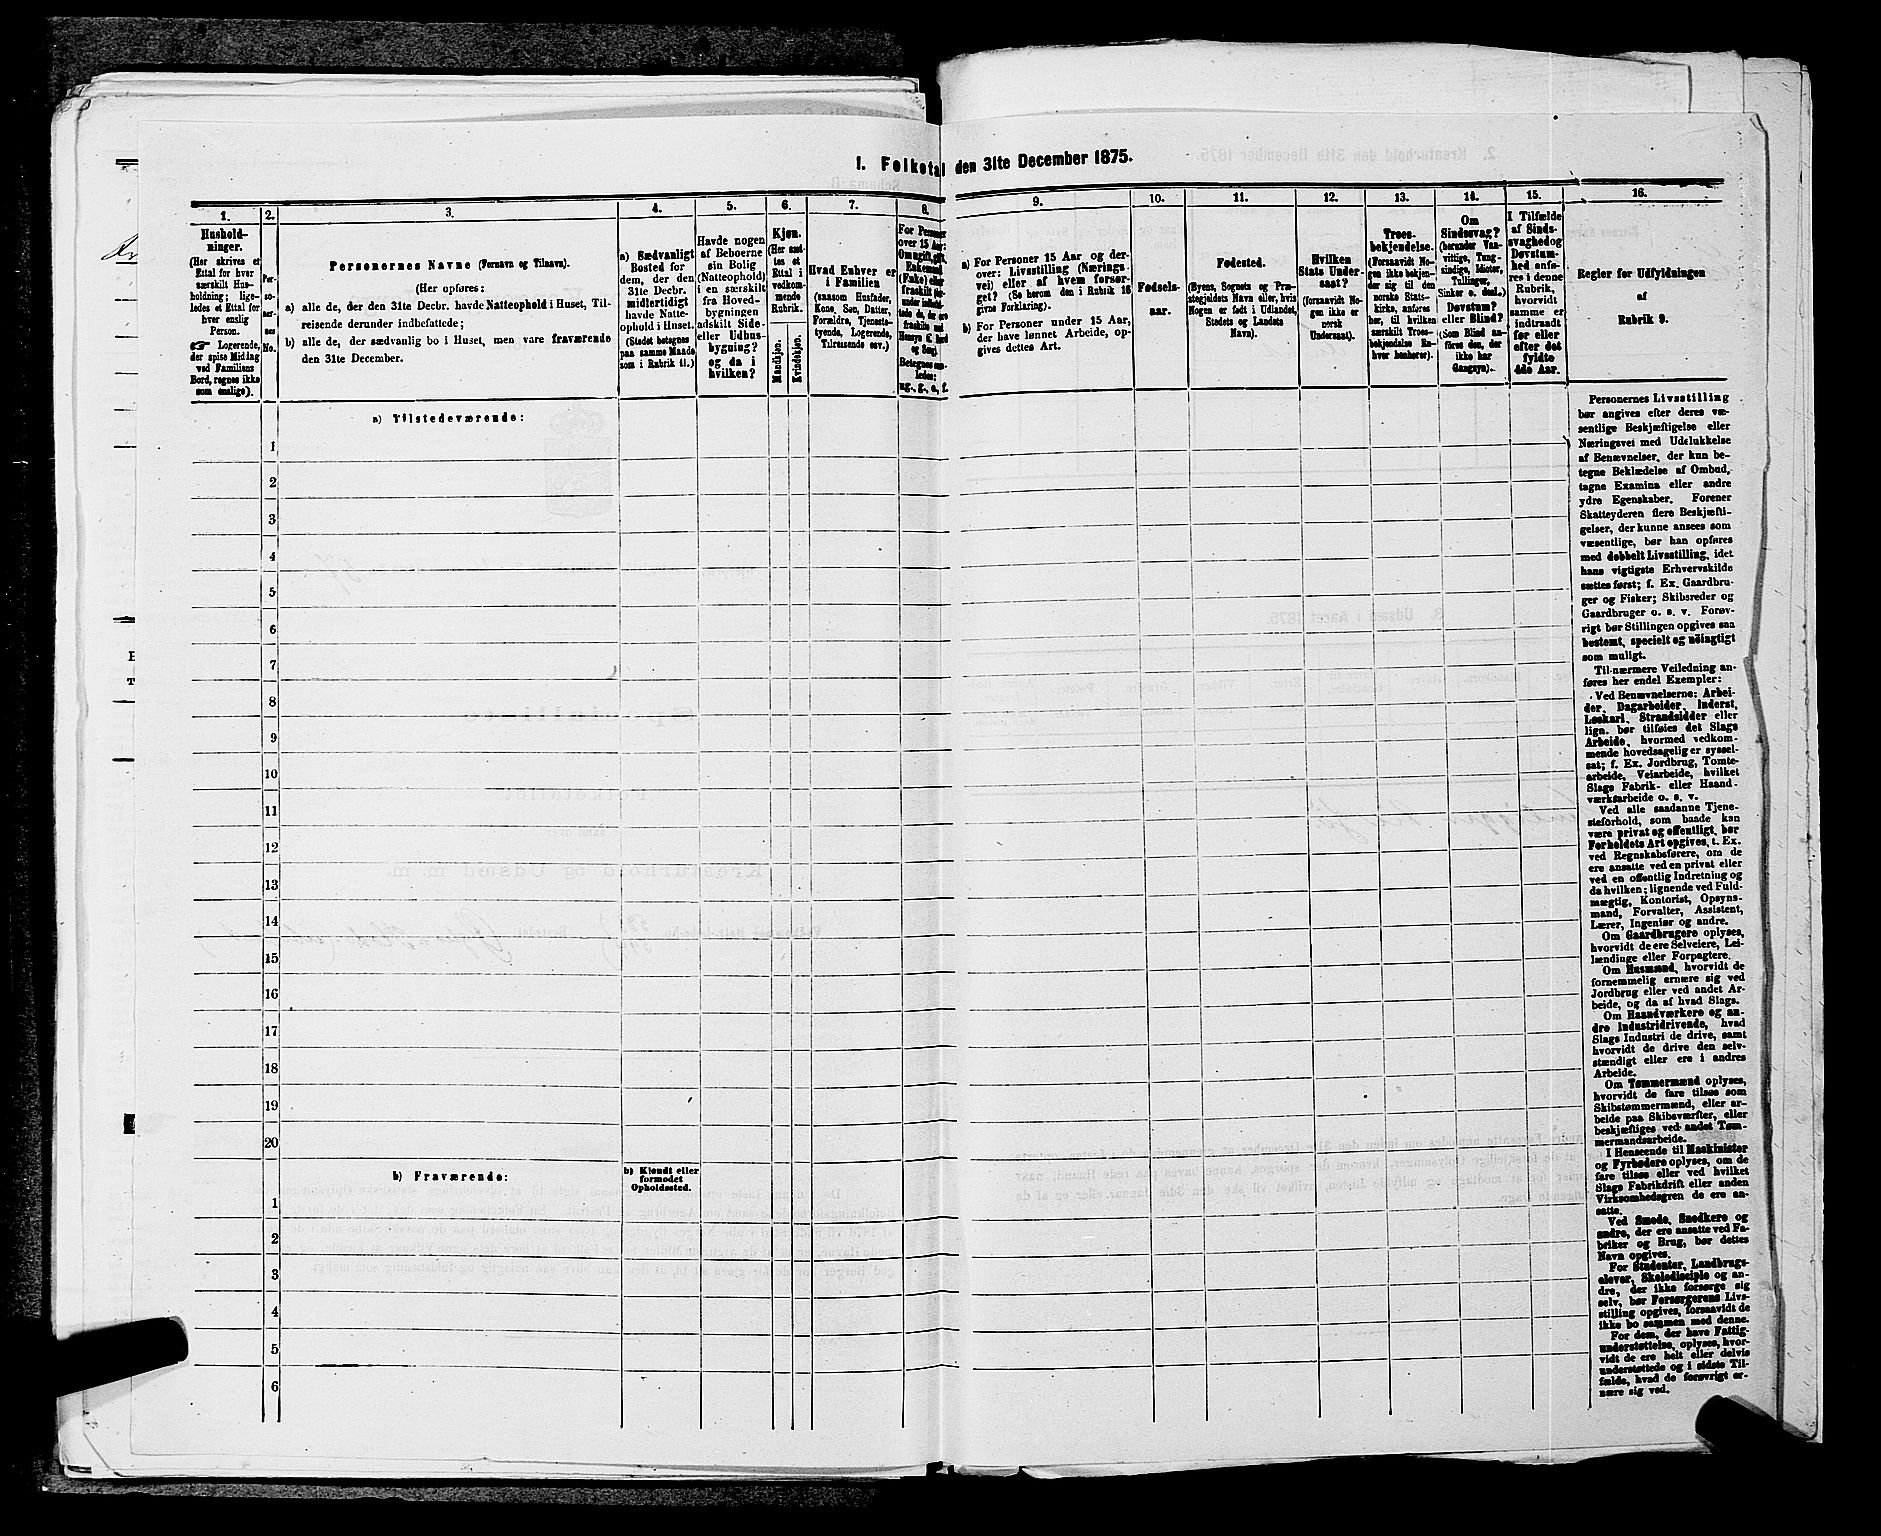 1. Folketal den 31te December 1875.
1.
2.
3.
4.
5.
6.
7.
8.
9.
10.
11.
12.
13.
14.
15.
16.
Hushold-
ninger.
(Her skrives et
Ettal for hver
særskilt Hus-
holdning; lige-
ledes et Ettal for
hver enslig
Person.
☞ Logerende,
der spise Middag
ved Familiens
Bord, regnes ikke
som enslige).
Per-
so-
ner-
nes
No.
Personernes Navne (Fornavn og Tilnavn).
(Her opføres:
a) alle de, der den 31te Decbr. havde Natteophold i Huset, Til-
reisende derunder indbefattede;
b) alle de, der sædvanlig bo i Huset, men vare fraværende
den 31te December.
a) Sædvanligt
Bosted for
dem, der den
31te Decbr.
midlertidigt
havde Natte-
ophold i Huset.
(Stedet betegnes
paa samme Maade
som i Rubrik 11.)
Havde nogen
af Beboerne
sin Bolig
(Natteophold)
i en særskilt
fra Hoved-
bygningen
adskilt Side-
eller Udhus-
bygning?
og da i
hvilken?
Kjøn.
(Her sæt-
tes et
Ettal i
vedkom-
mende
Rubrik.
Mandkjøn.
Kvindekjøn.
Hvad Enhver er
i Familien
(saasom Husfader,
Kone, Søn, Datter,
Forældre, Tjeneste-
tyende, Logerende,
Tilreisende osv.)
For Personer
over 15 Aar:
Om ugift, gift,
Enkemand
(Enke) eller
fraskilt
Betegnes saa-
ledes:
ug., g., e., f.
a) For Personer 15 Aar og der-
over: Livsstilling (Nærings-
vei) eller af hvem forsør-
get? (Se herom den i Rubrik 16
givne Forklaring).
b) For Personer under 15 Aar,
der have lønnet Arbeide, op-
gives dettes Art.
Fødsels-
aar.
Fødested.
(Byens, Sognets og Præ-
stegjeldets Navn eller, hvis
Nogen er født i Udlandet,
Stedets og Landets
Navn).
Hvilken
Stats Under-
saat?
(forsaavidt No-
gen ikke er
norsk
Undersaat).
Troes-
bekjendelse.
(Forsaavidt No-
gen ikke bekjen-
der sig til den
norske Stats-
kirke, anføres
her, til hvilken
særskilt Troes-
bekjendelse En-
hver henhører).
Om
Sindssvag?
(herunder Van-
vittige, Tung-
sindige, Idioter,
Tullinger,
Sinker o. desl.)
Døvstum?
eller Blind?
(Som Blind an-
føres den, der
ikke har
Gangsyn).
I Tilfælde
af Sinds-
svaghed og
Døvstum-
hed anfø-
res i denne
Rubrik,
hvorvidt
samme er
indtraadt
før eller
efter det
fyldte
4de Aar.
Regler for Udfyldningen
af
Rubrik 9.
a) Tilstedeværende:
1
2
3
4
5
6
7
8
9
10
11
12
13
14
15
16
17
18
19
20
b) Fraværende:
b) Kjendt eller
formodet
Opholdssted.
1
2
3
4
5
6
Personernes Livsstilling
bør angives efter deres væ-
sentlige Beskjæftigelse eller
Næringsvei med Udelukkelse
af Benævnelser, der kun be-
tegne Beklædelse af Ombud,
tagne Examina eller andre
ydre Egenskaber. Forener
Skatteyderen flere Beskjæfti-
gelser, der kunne ansees som
væsentlige, bør han opføres
med dobbelt Livsstilling, idet
hans vigtigste Erhvervskilde
sættes først; f. Ex. Gaardbru-
ger og Fisker; Skibsreder og
Gaardbruger o. s. v. Forøv-
rigt bør Stillingen opgives saa
bestemt, specielt og nøiagtigt
som muligt.
Til nærmere Veiledning an-
føres her endel Exempler:
Ved Benævnelserne: Arbei-
der, Dagarbeider, Inderst,
Løskarl, Strandsidder eller
lign. bør tilføies det Slags
Arbeide, hvormed vedkom-
mende hovedsagelig er syssel-
sat; f. Ex. Jordbrug, Tomte-
arbeide, Veiarbeide, hvilket
Slags Fabrik- eller Haand-
værksarbeide o. s. v.
Ved alle saadanne Tjene-
steforhold, som baade kan
være privat og offentligt, bør
Forholdets Art opgives, t. Ex.
ved Regnskabsførere, om de
ere ansatte ved en privat eller
ved en offentlig Indretning og
da hvilken; lignende ved Fuld-
mægtig, Kontorist, Opsyns-
mand, Forvalter, Assistent,
Lærer, Ingeniør og andre.
Om Gaardbrugere oplyses,
hvorvidt de ere Selveiere, Lei-
lændinge eller Forpagtere.
Om Husmænd, hvorvidt de
fornemmelig ernære sig ved
Jordbrug eller ved andet Ar-
beide, og da af hvad Slags.
Om Haandværkere og an-
dre Industridrivende, hvad
Slags Industri de drive, samt
hvorvidt de drive den selv-
stændigt eller ere i andres
Arbeide.
Om Tømmermænd oplyses,
hvorvidt de fare tilsøs som
Skibstømmermænd, eller ar-
beide paa Skibsværfter, eller
beskjæftiges ved andet Tøm-
mermandsarbeide.
I Henseende til Maskinister
og Fyrbødere oplyses, om de
fare tilsøs eller ved hvilket
Slags Fabrikdrift eller anden
Virksomhedsgren de ere an-
satte.
Ved Smede, Snedkere og
andre, der ere ansatte ved Fa-
briker og Brug, bør dettes
Navn opgives.
For Studenter, Landbrugs-
elever, Skoledisciple og an-
dre, der ikke forsørge sig
selv, bør Forsørgerens Livs-
stilling opgives, forsaavidt de
ikke bo sammen med denne.
For dem, der have Fattig-
understøttelse, oplyses, hvor-
vidt de ere helt eller delvis
understøttede og i sidste Til-
fælde, hvad de forøvrigt er-
nære sig ved.